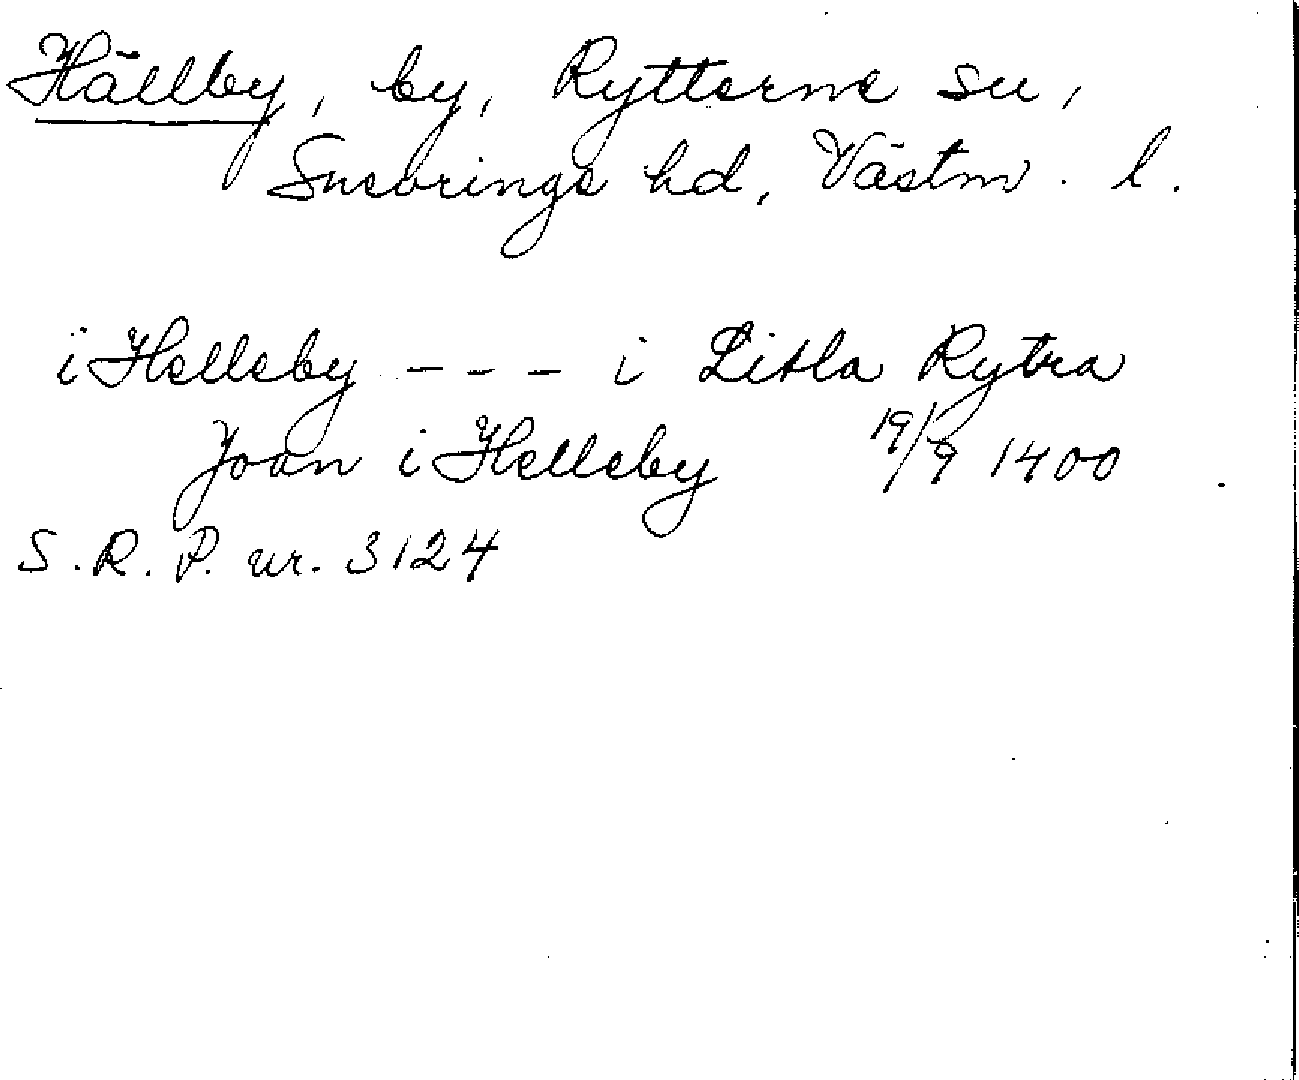 Hällby, by, Rytterne sn,
Snevringe hd, Västm. l.
i Helleby --- i Litla Rytra
Joan i Helleby 19/9 1400
S.R.P. nr. 3124